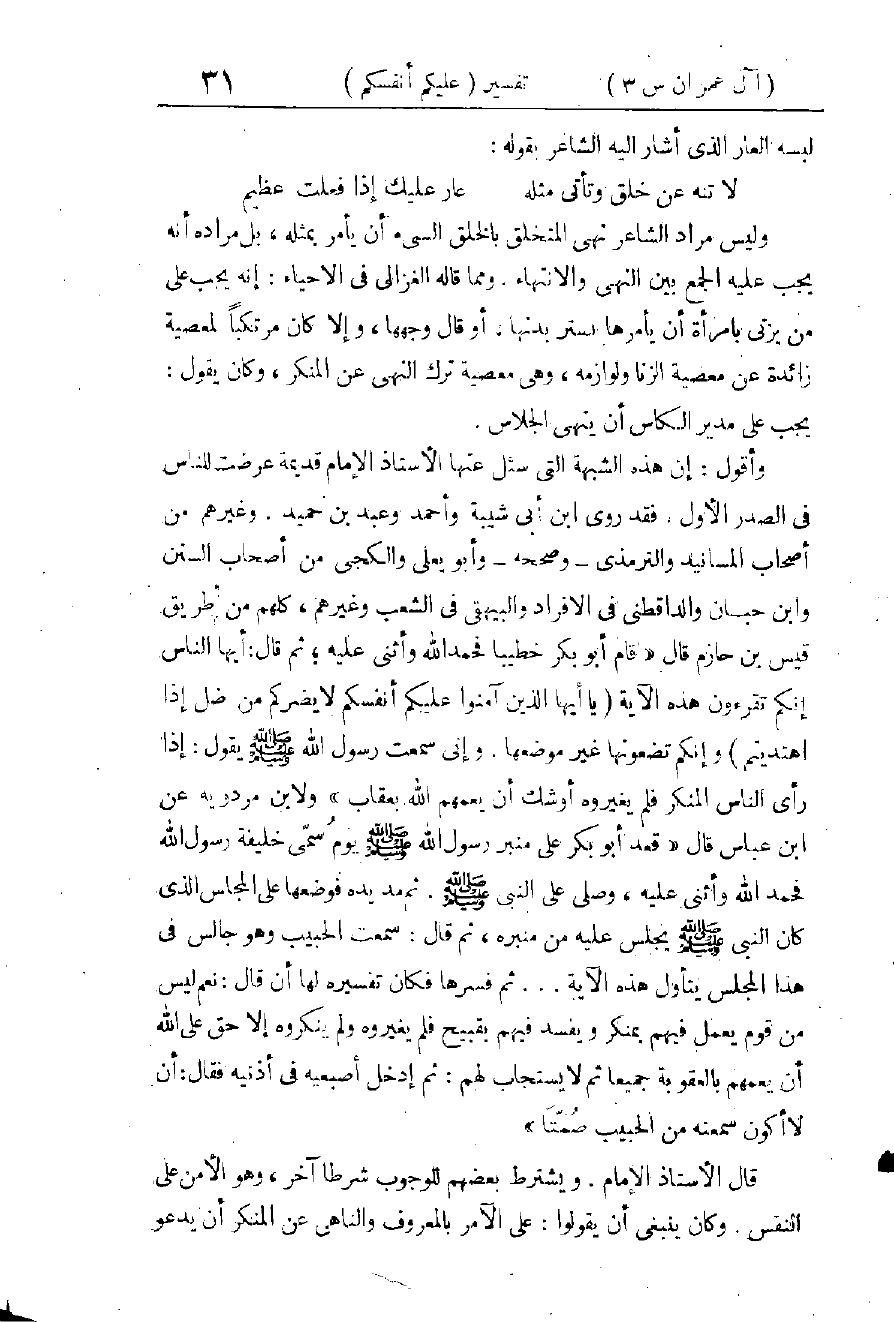 ( آل عمران س ٣ ) تفسير ( عليكم أنفسكم ) ٣١
لبسه العار الذى أشار اليه الشاعر بقوله :
لا تنه عن خلق وتأتى مثله عار عليك إذا فعلت عظيم
وليس مراد الشاعر نهى المتخلق بالخلق السىء أن يأمر بمثله ، بل مراده أنه
يجب عليه الجمع بين النهى والانتهاء . ومما قاله الغزالى فى الاحياء : إنه يجب على
من يزنى بامرأة أن يأمرها بستر بدنها ، أو قال وجهها ، وإلا كان مرتكباً لمعصية
زائدة عن معصية الزنا ولوازمه ، وهى معصية ترك النهى عن المنكر ، وكان يقول :
يجب على مدير الكاس أن ينهى الجلاس .
وأقول : إن هذه الشبهة التى سئل عنها الأستاذ الإمام قديمة عرضت للناس
فى الصدر الأول . فقد روى ابن أبى شيبة وأحمد وعبد بن حميد . وغيرهم من
أصحاب المسانيد والترمذى ـ وصححه ـ وأبو يعلى والكجى من أصحاب السنن
وابن حبان والداقطنى فى الافراد والبيهقى فى الشعب وغيرهم ، كلهم من طريق
قيس بن حازم قال « قام أبو بكر خطيبا فحمد الله وأثنى عليه ، ثم قال : أيها الناس
إنكم تقرءون هذه الآية ( يا أيها الذين آمنوا عليكم أنفسكم لا يضركم من ضل إذا
اهتديتم ) وإنكم تضعونها غير موضعها . وإنى سمعت رسول الله ﷺ يقول : إذا
رأى الناس المنكر فلم يغيروه أوشك أن يعمهم الله بعقاب » ولابن مردويه عن
ابن عباس قال « قعد أبو بكر على منبر رسول الله ﷺ يوم سُمّى خليفة رسول الله
فحمد الله وأثنى عليه ، وصلى على النبى ﷺ . ثم مد يده فوضعها على المجلس الذى
كان النبى ﷺ يجلس عليه من منبره ، ثم قال : سمعت الحبيب وهو جالس فى
هذا المجلس يتأول هذه الآية . . . ثم فسرها فكان تفسيره لها أن قال : نعم ليس
من قوم يعمل فيهم بمنكر ويفسد فيهم بقبيح فلم يغيروه ولم ينكروه إلا حق على الله
أن يعمهم بالعقوبة جميعا ثم لا يستجاب لهم : ثم إدخل أصبعيه فى أذنيه فقال : أن
لا أكون سمعته من الحبيب صُمَّتَا »
قال الأستاذ الإمام . ويشترط بعضهم للوجوب شرطا آخر ، وهو الأمن على
النفس . وكان ينبغى أن يقولوا : على الآمر بالمعروف والناهى عن المنكر أن يدعو